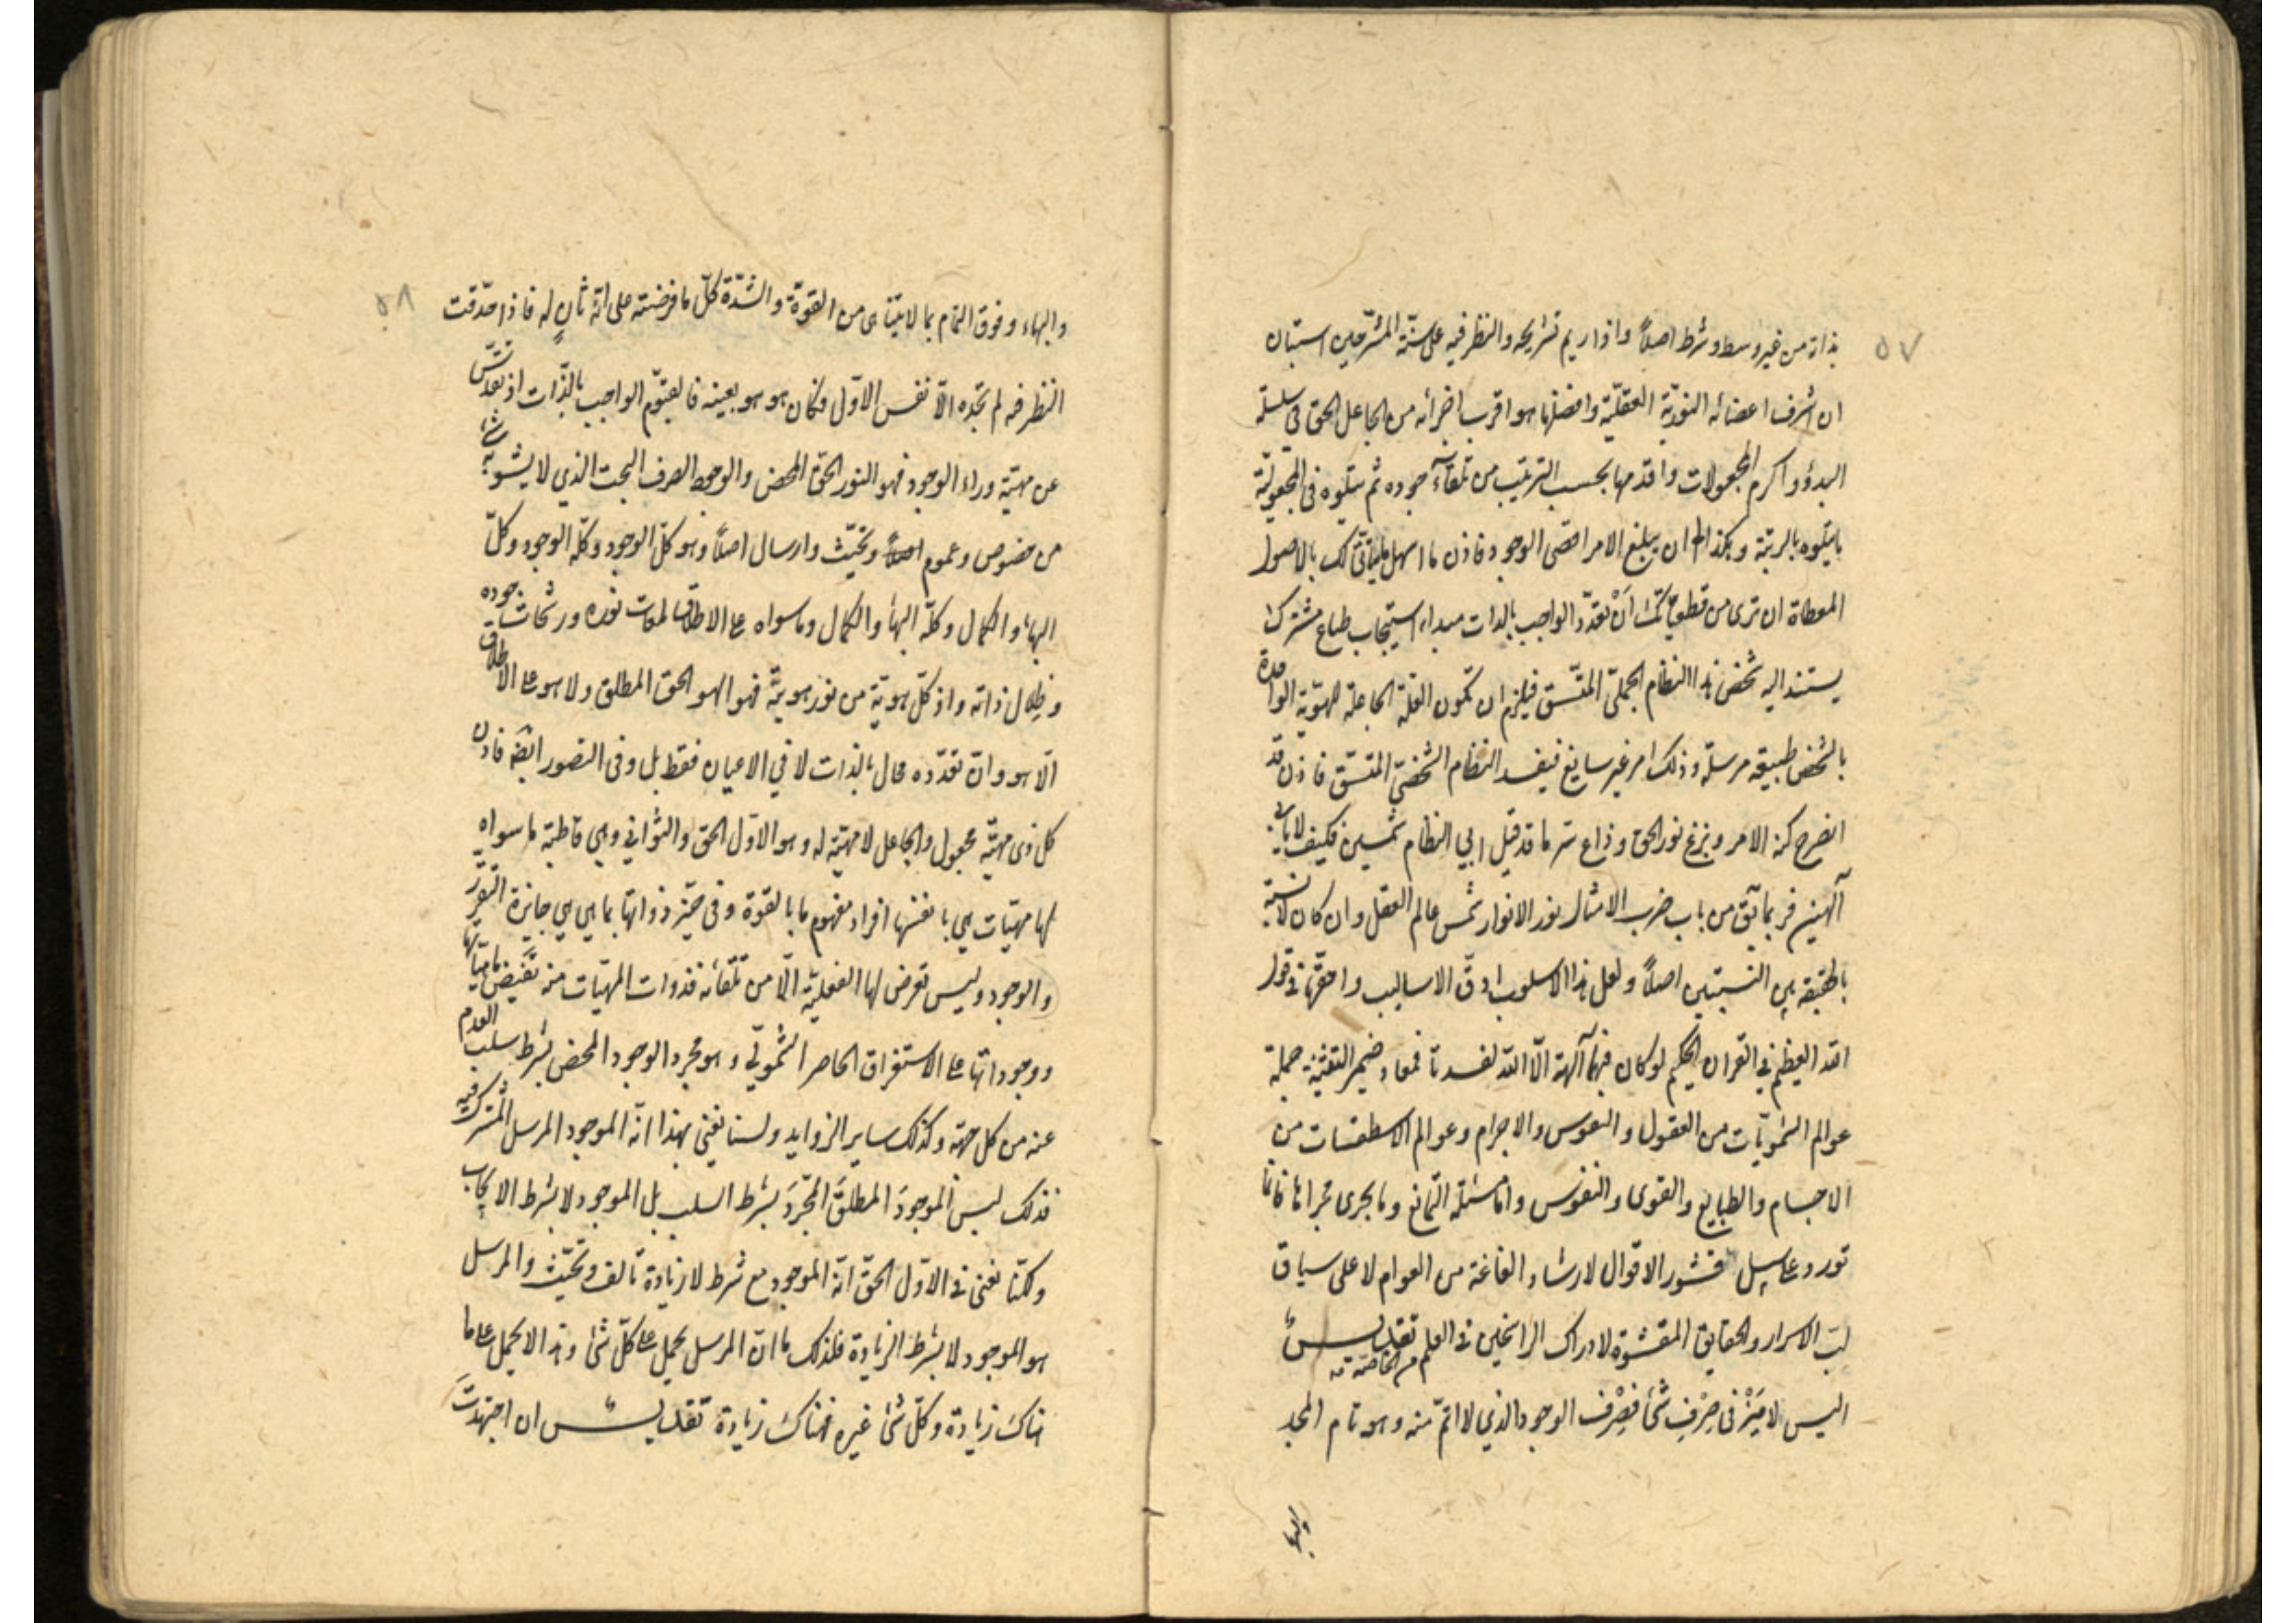 ٥٧
بذاته من غير وسط وشرط اصلاً واذا ريم تشريحه والنظر فيه على سنّة المشرّحين استبان
ان اشرف اعضائه النوريّة العقليّة وافضلها هو اقرب اجزائه من الجاعل الحق في سلسلة
البدؤ واكرم المجعولات واقدمها بحسب الترتيب من تلقآء جوده ثم يتلوه في المجعوليّة
ما يتلوه بالرتبة وهكذا الى ان يبلغ الامر اقصى الوجود فاذن ما اسهل ما يتأتّى لك بالاصول
المعطاة ان ترى من انّ تعدّد الواجب بالذات مبداء استيجاب طباع مشترك
يستند اليه شخص هذا النظام الجملىّ المتّسق فيلزم ان تكون العلّة الجاعلة للهويّة الواحدة
بالشخص طبيعة مرسلة وذلك امر غير سايغ فيفسد النظام الشخصىّ المتسق فاذن قد
انصرح كنه الامر وبزغ نور الحق وذاع سرّ ما قد قيل ابي النظام شمسين فكيف لا يأبى
آلهين فربما يق من باب ضرب الامثال نور الانوار شمس عالم العقل وان كان لا نسبة
بالحقيقة بين النسبتين اصلاً ولعل هذا الاسلوب ادقّ الاساليب واحقّها في قول
الله العظيم في القران الحكيم لو كان فيهما آلهة الّا الله لفسدتا فمعاد ضمير التثنية جملة
عوالم السّمويّات من العقول والنفوس والاجرام وعوالم الاسطقسات من
الاجسام والطبايع والقوى والنفوس وامّا مسئلة التمانع وما يجرى مجراها فانما
تورد على سبيل قشور الاقوال لارشاد الفاغة من العوام لا على سياق
لبّ الاسرار والحقايق المقشّوة لادراك الراسخين في العلم من الخاصّة تقديس
اليس لا مَيْز في صِرْفِ شئ فصِرْف الوجود الذي لا اتمّ منه وهو تام المجد
والبهاء
٥٨
والبهاء وفوق التمام بما لا يتناهى من القوّة والشدّة كلّ ما فرضته على انّه ثانٍ له فاذا حدّقت
النظر فيه لم تجده الّا نفس الاوّل فكان هو هو بعينه فالقيّوم الواجب بالذّات اذ تقدّس
عن مهيّة وراء الوجود فهو النور الحق المحض والوجود الصرف البحت الذي لا يشوبه شئ
من خصوص وعموم وتحيّث وارسال اصلاً وهو كل الوجود وكلّه الوجود وكلّ
البهاء والكمال وكلّه البهاء والكمال وما سواه على الاطلاق لمعات نوره ورشحات جوده
وظلال ذاته واذ كلّ هويّة من نور هويّته فهو الهو الحق المطلق ولا هو على الاطلاق
الّا هو وانّ تعدّده محال بالذات لا في الاعيان فقط بل وفى التصور ايضه فاذن
كل ذي مهيّة مجعول والجاعل لا مهيّة له وهو الاوّل الحق والثواني وهي قاطبة ما سواه
لها مهيّات هي بانفسها افراد مفهوم ما بالقوة وفي حيّز ذواتها بما هي هي جايزة التقرّر
والوجود وليس تعرض لها الفعليّة الّا من تلقائه فذوات المهيّات منه تفيض مهيّاتها
ووجوداتها على الاستغراق الحاصر الشموليّ وهو مجرد الوجود المحض بشرط سلب العدم
عنه من كل جهة وكذلك ساير الزوايد ولسنا نعني بهذا انّه الموجود المرسل المشترك فيه
فذلك ليس الموجودَ المطلقَ المجرّدَ بشرط السلب بل الموجود لا بشرط الايجاب
وكلّنا نعنى في الاوّل الحقّ انّه الموجود مع شرط لا زيادة تألف وتحيّث والمرسل
هو الموجود لا بشرط الزيادة فلذلك ما انّ المرسل يحمل على كلّ شئ وهذا لا يحمل على ما
هناك زيادة وكلّ شئ غيره فهناك زيادة تقديس ان اجتهدتَ